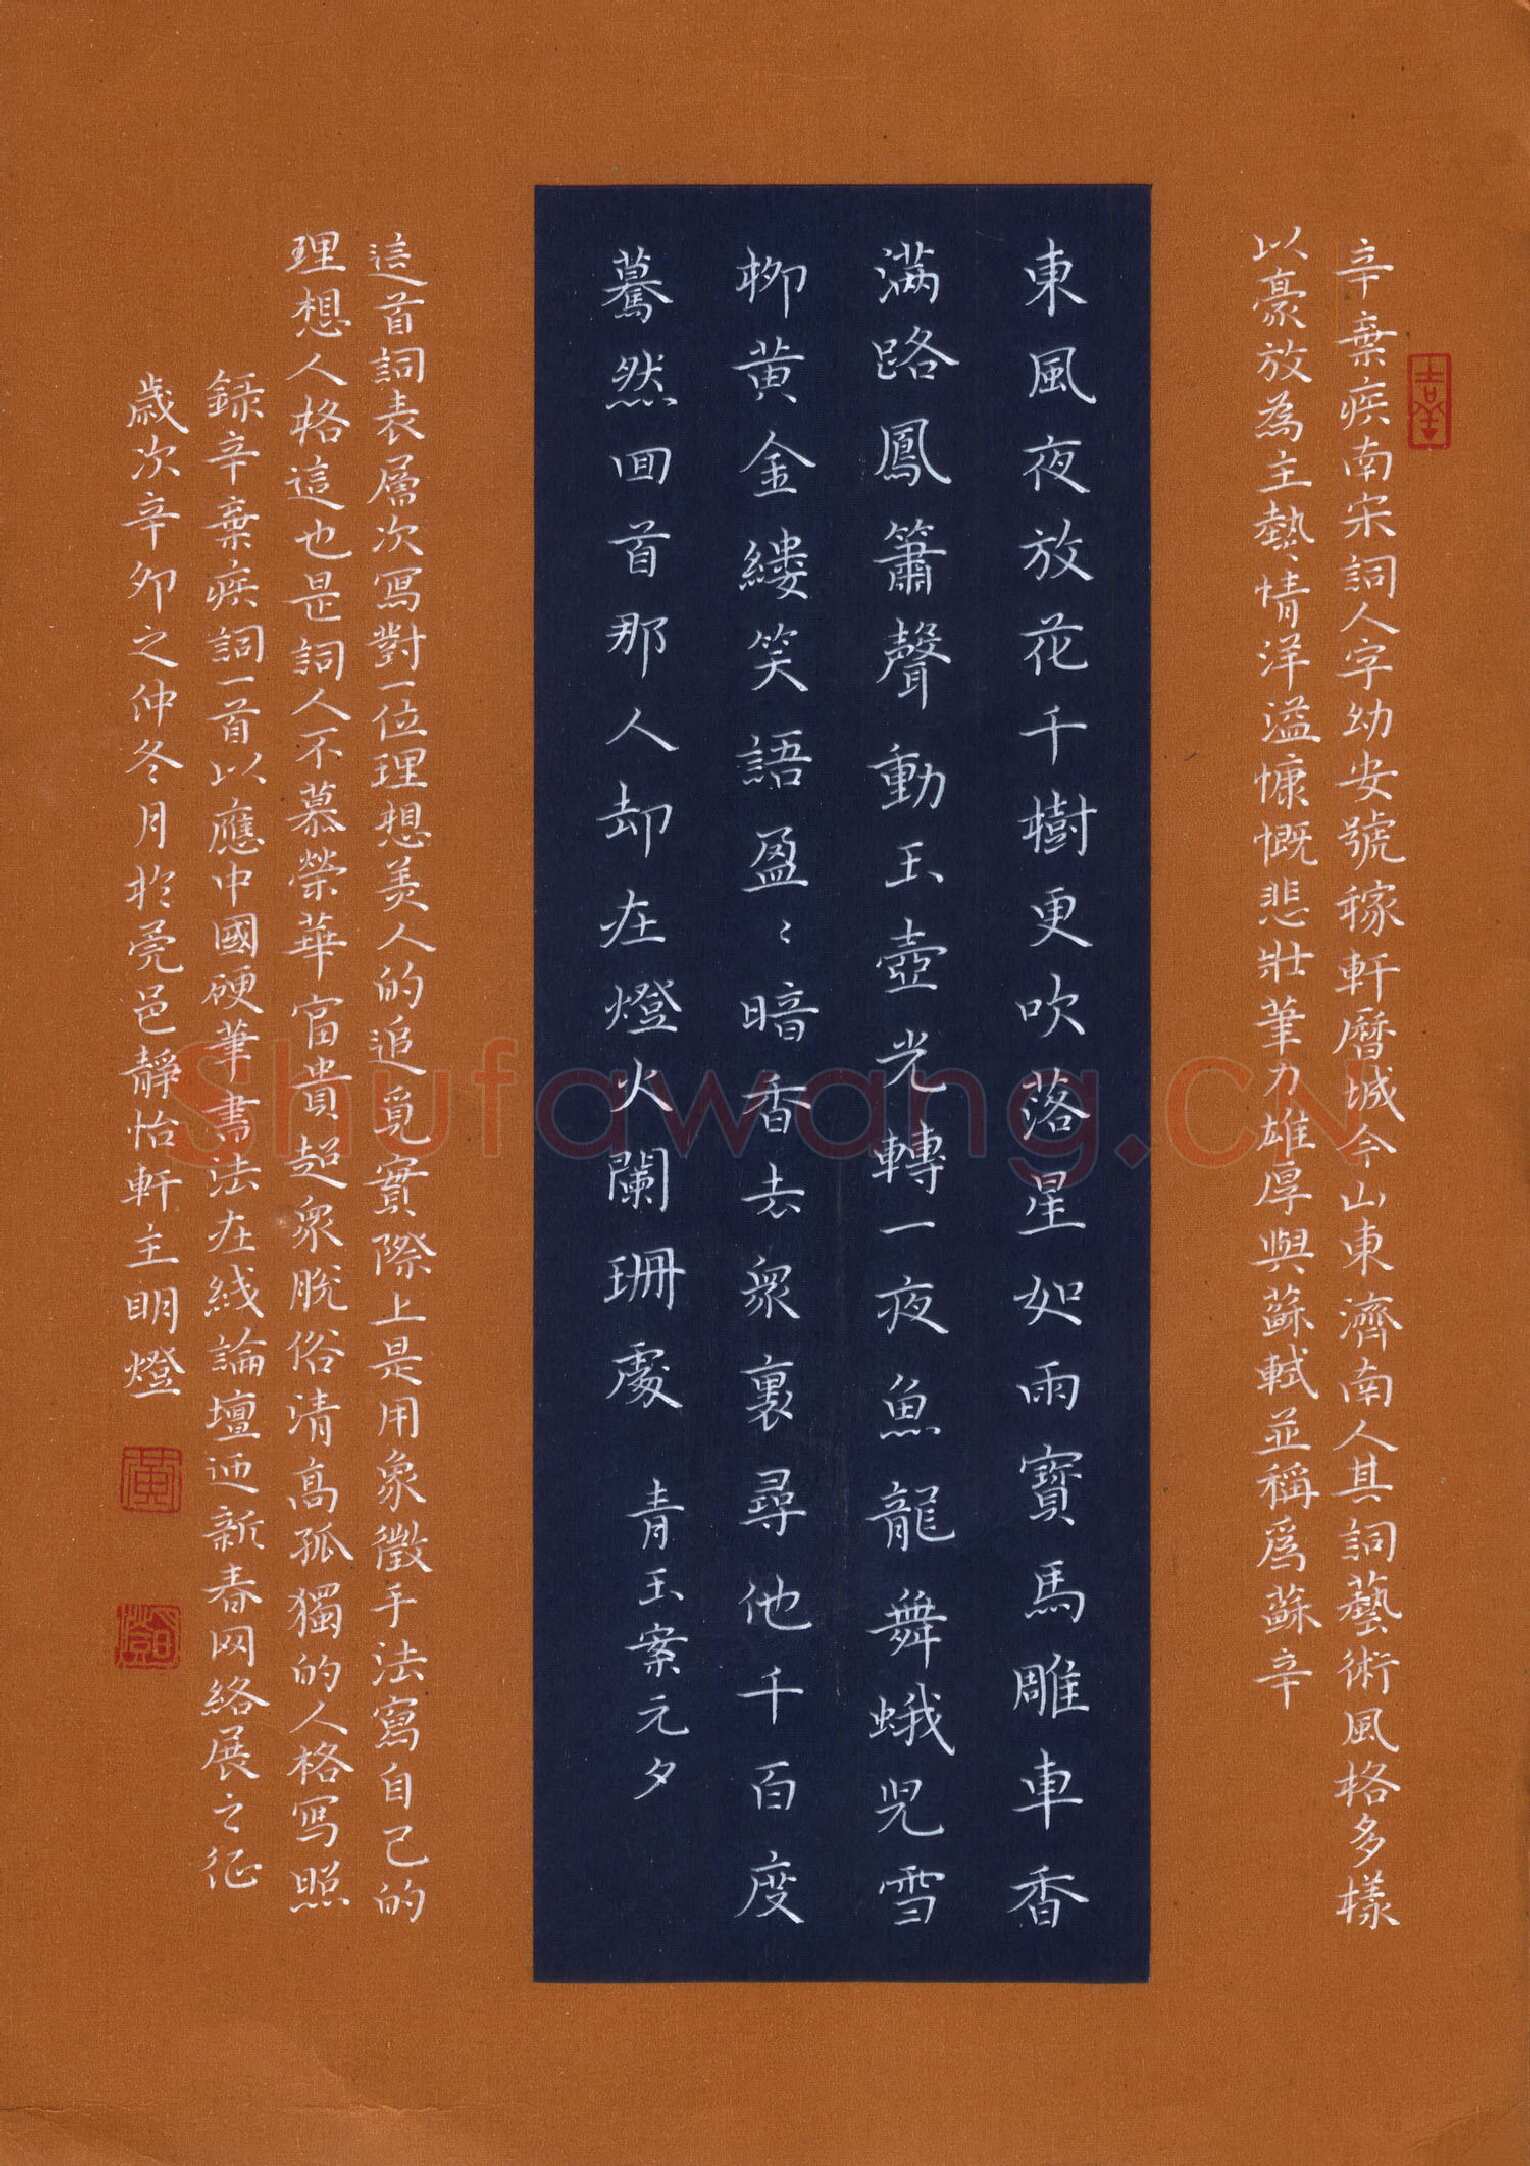 辛棄疾南宋詞人字幼安號稼軒曆城今山東濟南人其詞藝術風格多樣
以豪放為主熱情洋溢慷慨悲壯筆力雄厚與蘇軾並稱爲蘇辛
東風夜放花千樹更吹落星如雨寶馬雕車香
滿路鳳簫聲動玉壺光轉一夜魚龍舞蛾兒雪
柳黃金縷笑語盈〻暗香去衆裏尋他千百度
驀然回首那人却在燈火闌珊處 青玉案元夕
這首詞表層次寫對一位理想美人的追覓實際上是用象徵手法寫自己的
理想人格這也是詞人不慕榮華富貴超衆脫俗清高孤獨的人格寫照
錄辛棄疾詞一首以應中國硬筆書法在线論壇迊新春网絡展之征
歲次辛卯之仲冬月於亮邑靜怡軒主明燈
黄
Shufawang.CN